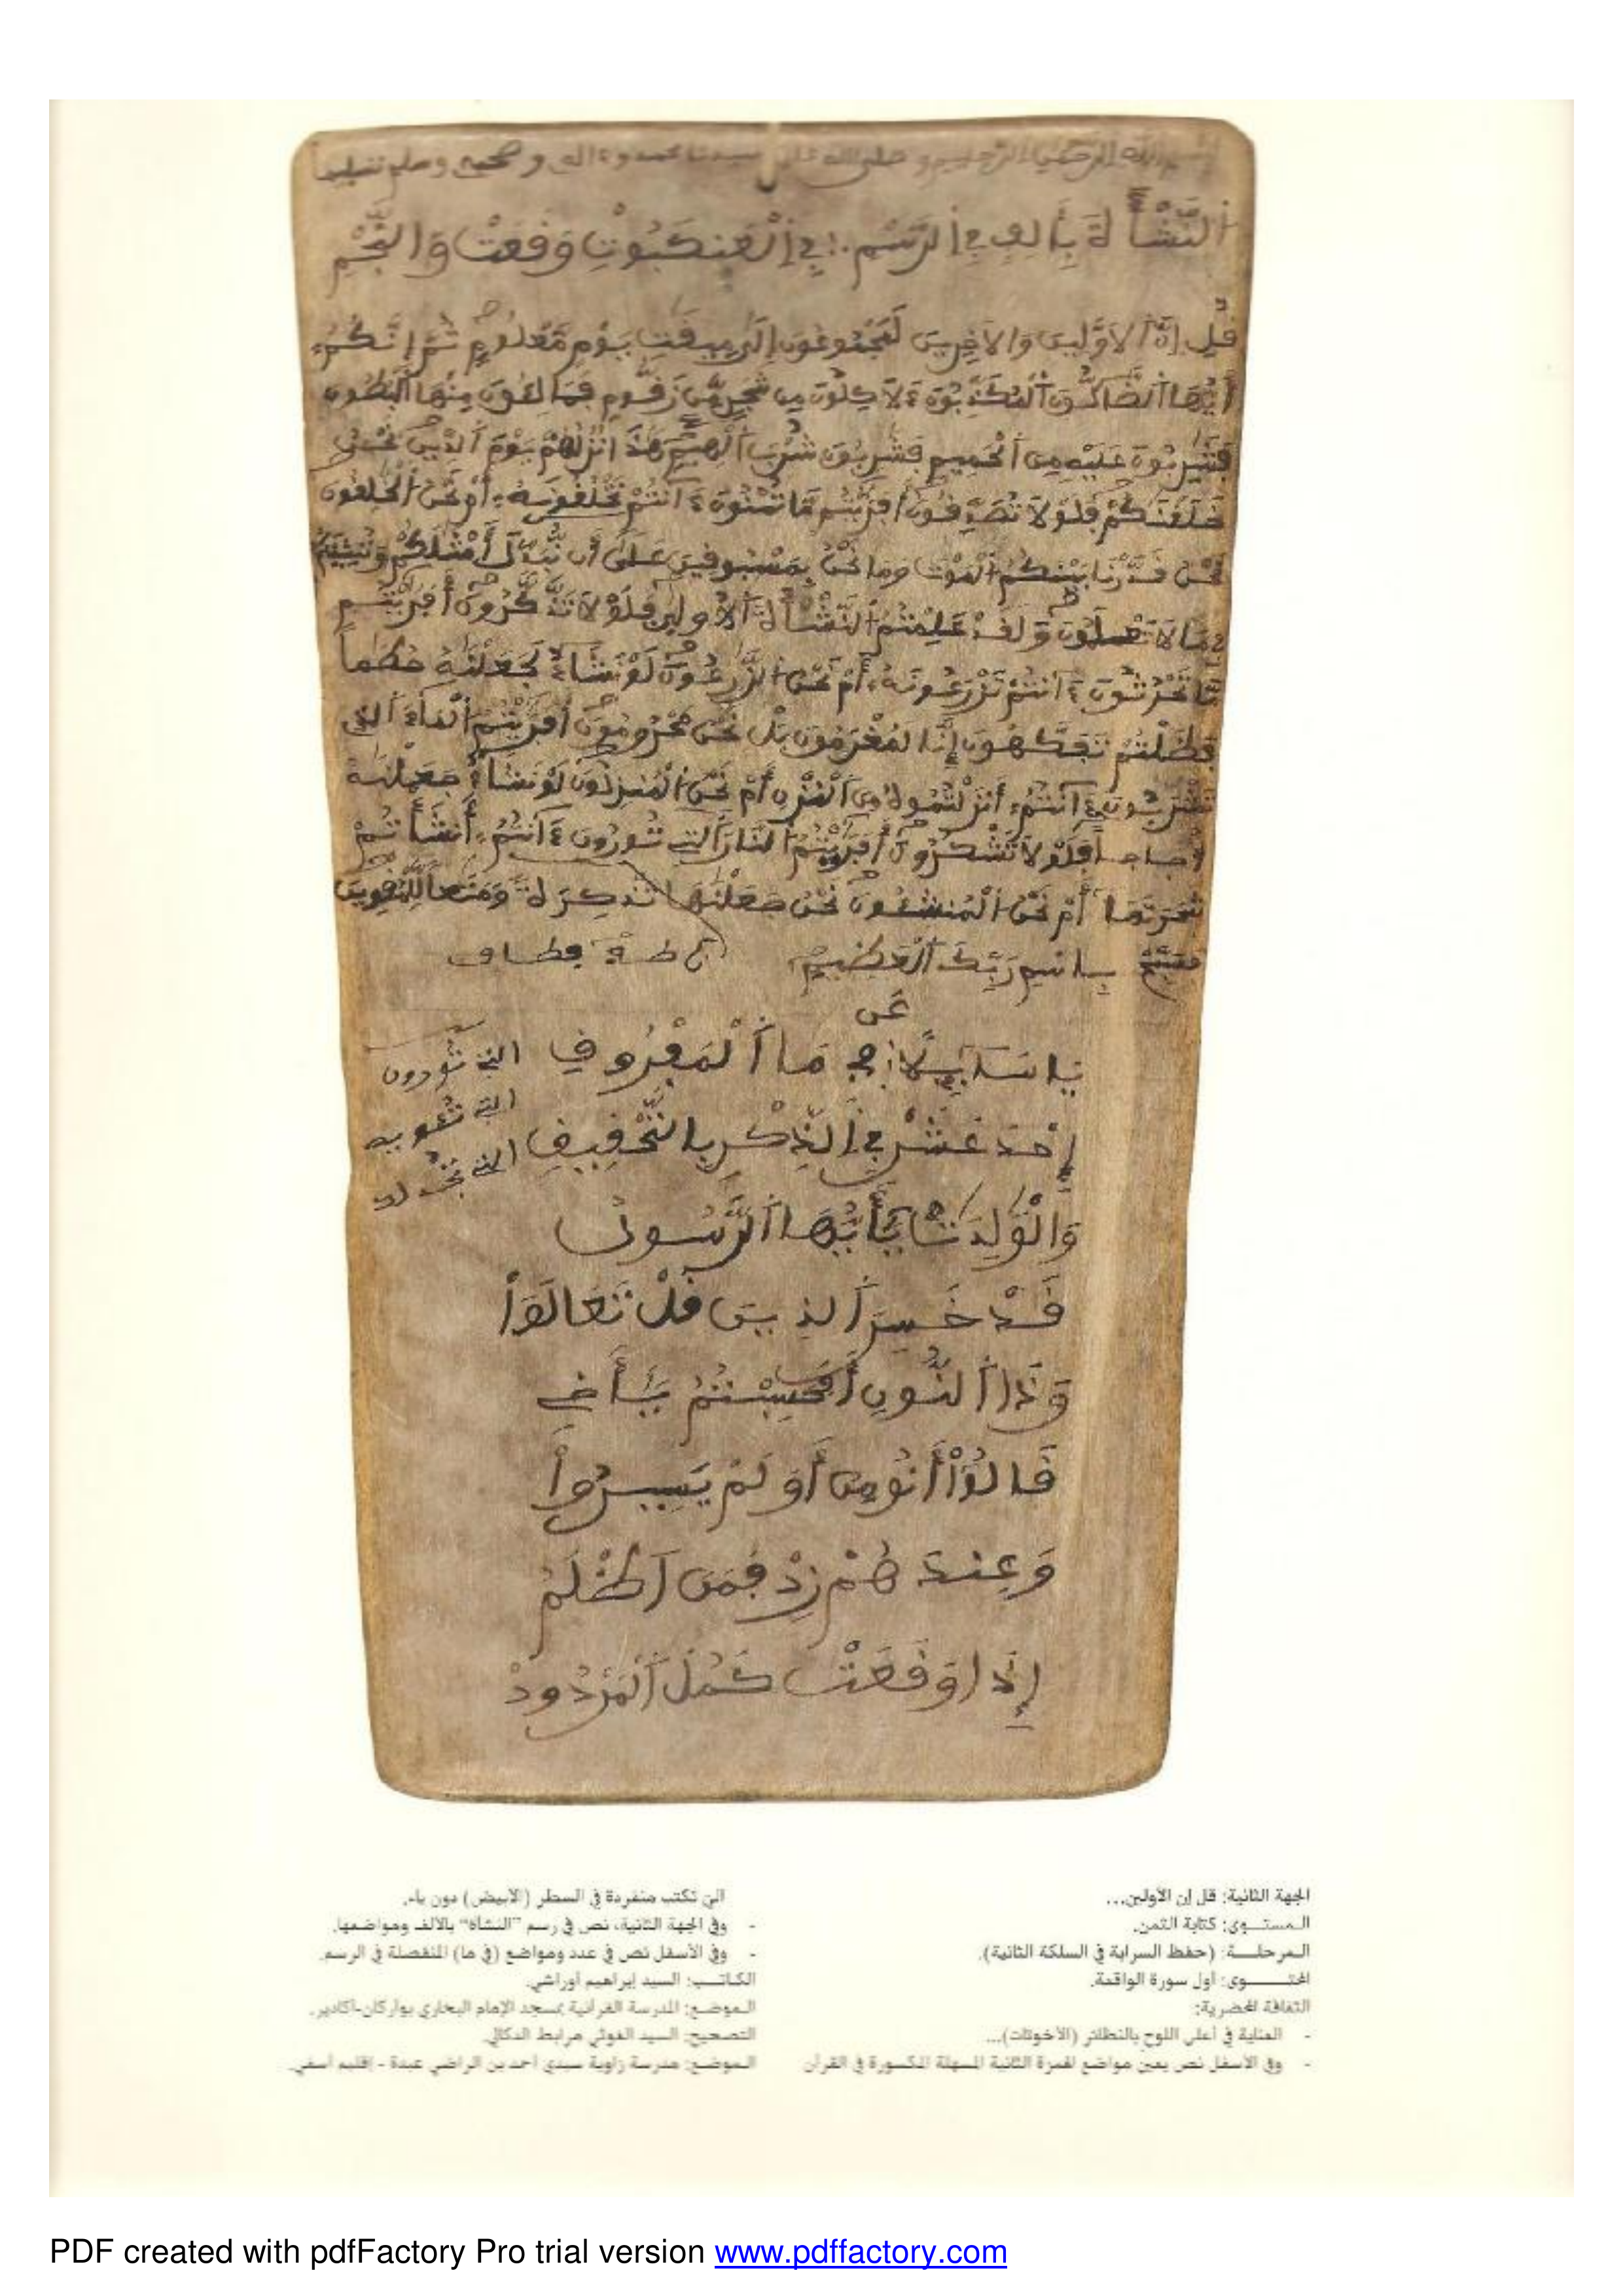 بسم الله الرحمن الرحيم وصلى الله على سيدنا محمد وءاله وصحبه وسلم تسليما
اَلنَّشْأَةَ بِأَلِفٍ فِي اِلرَّسْمِ فِي اِلْعَنكَبُوتِ وَقَعَتْ وَالنَّجْمِ
قُلِ اِنَّ اَلاَوَّلِينَ وَالاَخِرِينَ لَمَجْمُوعُونَ إِلَىٰ مِيقَٰتِ يَوْمٍ مَّعْلُومٍ ثُمَّ إِنَّكُمُۥ
أَيُّهَا اَلضَّآلُّونَ اَلْمُكَذِّبُونَ ءَلاَكِلُونَ مِن شَجَرٍ مِّن زَقُّومٍ فَمَالِـُٔونَ مِنْهَا اَلْبُطُونَ
فَشَٰرِبُونَ عَلَيْهِ مِنَ اَلْحَمِيمِ فَشَٰرِبُونَ شُرْبَ اَلْهِيمِ هَٰذَا نُزُلُهُمْ يَوْمَ اَلدِّينِ نَحْنُ
خَلَقْنَٰكُمْ فَلَوْلاَ تُصَدِّقُونَ أَفَرَٰٓيْتُم مَّا تُمْنُونَ ءَآنتُمْ تَخْلُقُونَهُۥٓ أَمْ نَحْنُ اَلْخَٰلِقُونَ
نَحْنُ قَدَّرْنَا بَيْنَكُمُ اَلْمَوْتَ وَمَا نَحْنُ بِمَسْبُوقِينَ عَلَىٰٓ أَن نُّبَدِّلَ أَمْثَٰلَكُمْ وَنُنشِئَكُمْ
فِي مَا لاَ تَعْلَمُونَ وَلَقَدْ عَلِمْتُمُ اَلنَّشْأَةَ اَلاُولَىٰ فَلَوْلاَ تَذَّكَّرُونَ أَفَرَٰٓيْتُم
مَّا تَحْرُثُونَ ءَآنتُمْ تَزْرَعُونَهُۥٓ أَمْ نَحْنُ اَلزَّٰرِعُونَ لَوْ نَشَآءُ لَجَعَلْنَٰهُ حُطَٰماً
فَظَلْتُمْ تَفَكَّهُونَ إِنَّا لَمُغْرَمُونَ بَلْ نَحْنُ مَحْرُومُونَ أَفَرَٰٓيْتُمُ اَلْمَآءَ اَلذِي
تَشْرَبُونَ ءَآنتُمُۥٓ أَنزَلْتُمُوهُ مِنَ اَلْمُزْنِ أَمْ نَحْنُ اَلْمُنزِلُونَ لَوْ نَشَآءُ جَعَلْنَٰهُ
أُجَاجاً فَلَوْلاَ تَشْكُرُونَ أَفَرَٰٓيْتُمُ اَلنَّارَ اَلتِي تُورُونَ ءَآنتُمُۥٓ أَنشَأْتُمْ
شَجَرَتَهَآ أَمْ نَحْنُ اَلْمُنشِـُٔونَ نَحْنُ جَعَلْنَٰهَا تَذْكِرَةً وَمَتَٰعاً لِّلْمُقْوِينَ
فَسَبِّحْ بِاسْمِ رَبِّكَ اَلْعَظِيمِ
عَن
يَا سَآئِلاً فِي مَا اَلْمَفْرُوقِ التي تورون
إِحْدَ عَشْرٍ فِي اِلذِّكْرِ بِالتَّحْقِيقِ
وَالْوَٰلِدَٰتُ يَٰٓأَيُّهَا اَلرَّسُولُ
قَدْ خَسِرَ اَلذِينَ قُلْ تَعَالَوْاْ
وَذَا اَلنُّونِ أَفَحَسِبْتُمْ يَٰٓأَخِي
قَالُوٓاْ أَنُومِنُ أَوَلَمْ يَسِيرُواْ
وَعِندَهُمْ زِدْ فَمَنَ اَظْلَمُ
إِذَا وَقَعَتْ كَمُلَ اَلْمَرْدُودْ
الجهة الثانية: قل إن الأولين...
المستوى: كتابة الثمن.
المرحلة: (حفظ السراية في السلكة الثانية).
المحتوى: أول سورة الواقعة.
الثقافة المحضرية:
- العناية في أعلى اللوح بالنظائر (الأخوتات)...
- وفي الأسفل نص يعين مواضع الهمزة الثانية المسهلة المكسورة في القرآن
التي تكتب منفردة في السطر (الأبيض) دون ياء.
- وفي الجهة الثانية، نص في رسم "النشأة" بالألف ومواضعها.
- وفي الأسفل نص في عدد ومواضع (في ما) المنفصلة في الرسم.
الكاتب: السيد إبراهيم أوراشي.
الموضع: المدرسة القرآنية بمسجد الإمام البخاري بواركان-أكادير.
التصحيح: السيد الغوثي مرابط الدكالي.
الموضع: مدرسة زاوية سيدي أحمد بن الراضي عبدة - إقليم أسفي.
PDF created with pdfFactory Pro trial version www.pdffactory.com